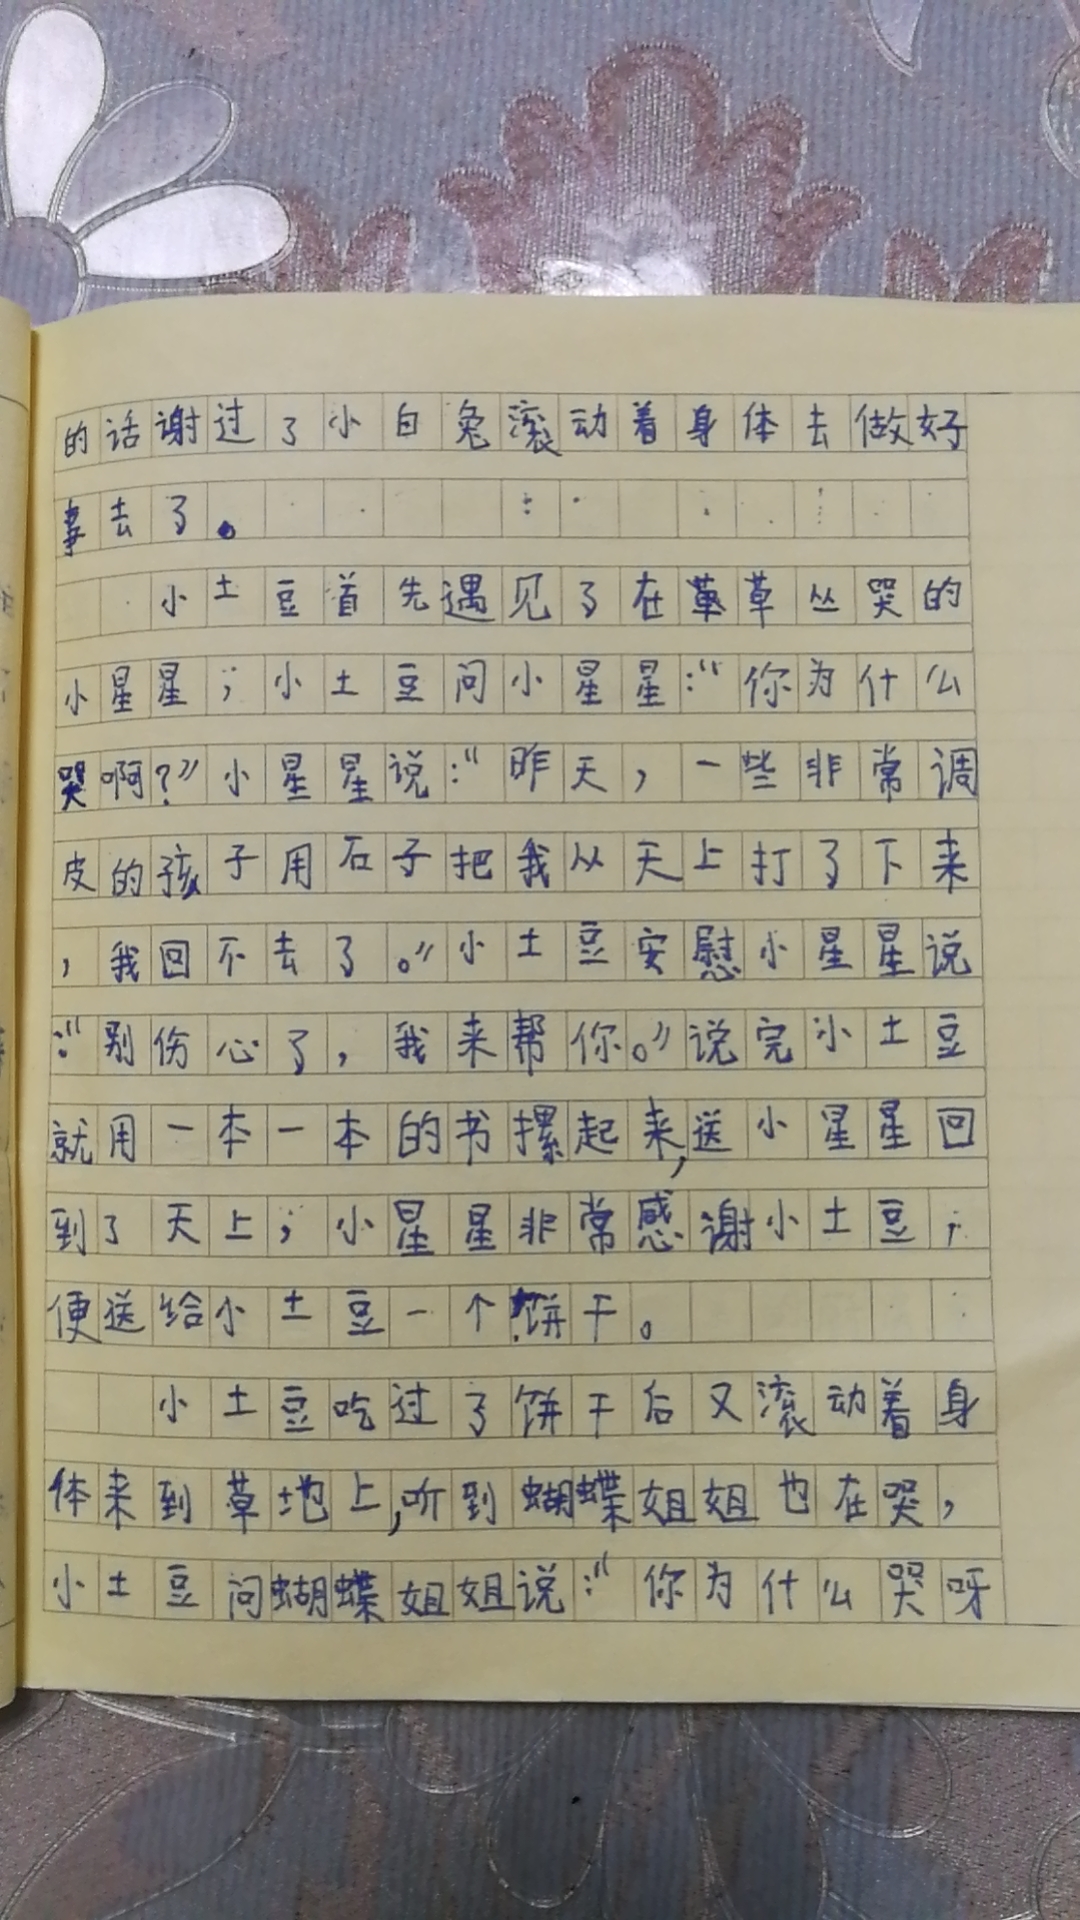 的话谢过了小白兔滚动着身体去做好
事去了。
小土豆首先遇见了在草草丛哭的
小星星；小土豆问小星星：“你为什么
哭啊？”小星星说：“昨天，一些非常调
皮的孩子用石子把我从天上打了下来
，我回不去了。”小土豆安慰小星星说
：“别伤心了，我来帮你。”说完小土豆
就用一本一本的书摞起来，送小星星回
到了天上；小星星非常感谢小土豆；
便送给小土豆一个饼干。
小土豆吃过了饼干后又滚动着身
体来到草地上，听到蝴蝶姐姐也在哭，
小土豆问蝴蝶姐姐说：“你为什么哭呀